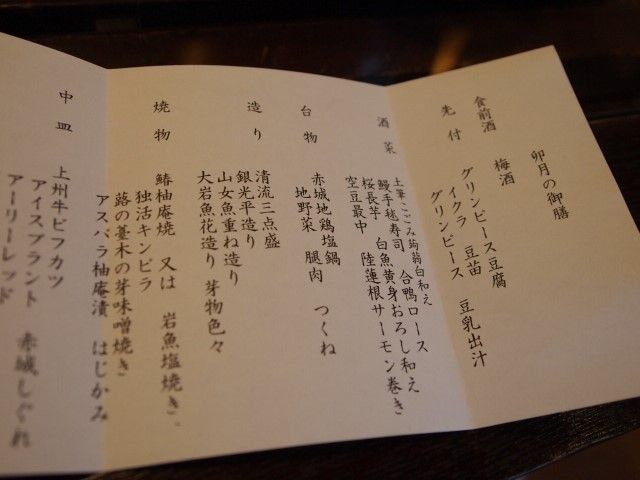 卯月の御膳
食前酒 梅酒
先付 グリンピース豆腐
イクラ 豆苗 豆乳出汁
グリンピース
酒菜 土筆こごみ蒟蒻白和え
鰻手毬寿司 合鴨ロース
桜長芋 白魚黄身おろし和え
空豆最中 陸蓮根サーモン巻き
台物 赤城地鶏塩鍋
地野菜 腿肉 つくね
造り 清流三点盛
銀光平造り
山女魚重ね造り
大岩魚花造り 芽物色々
焼物 鰆柚庵焼 又は 岩魚塩焼き、
独活キンピラ
蕗の薹木の芽味噌焼き
アスパラ柚庵漬 はじかみ
中皿 上州牛ビフカツ
アイスプラント 赤城しぐれ
アーリーレッド